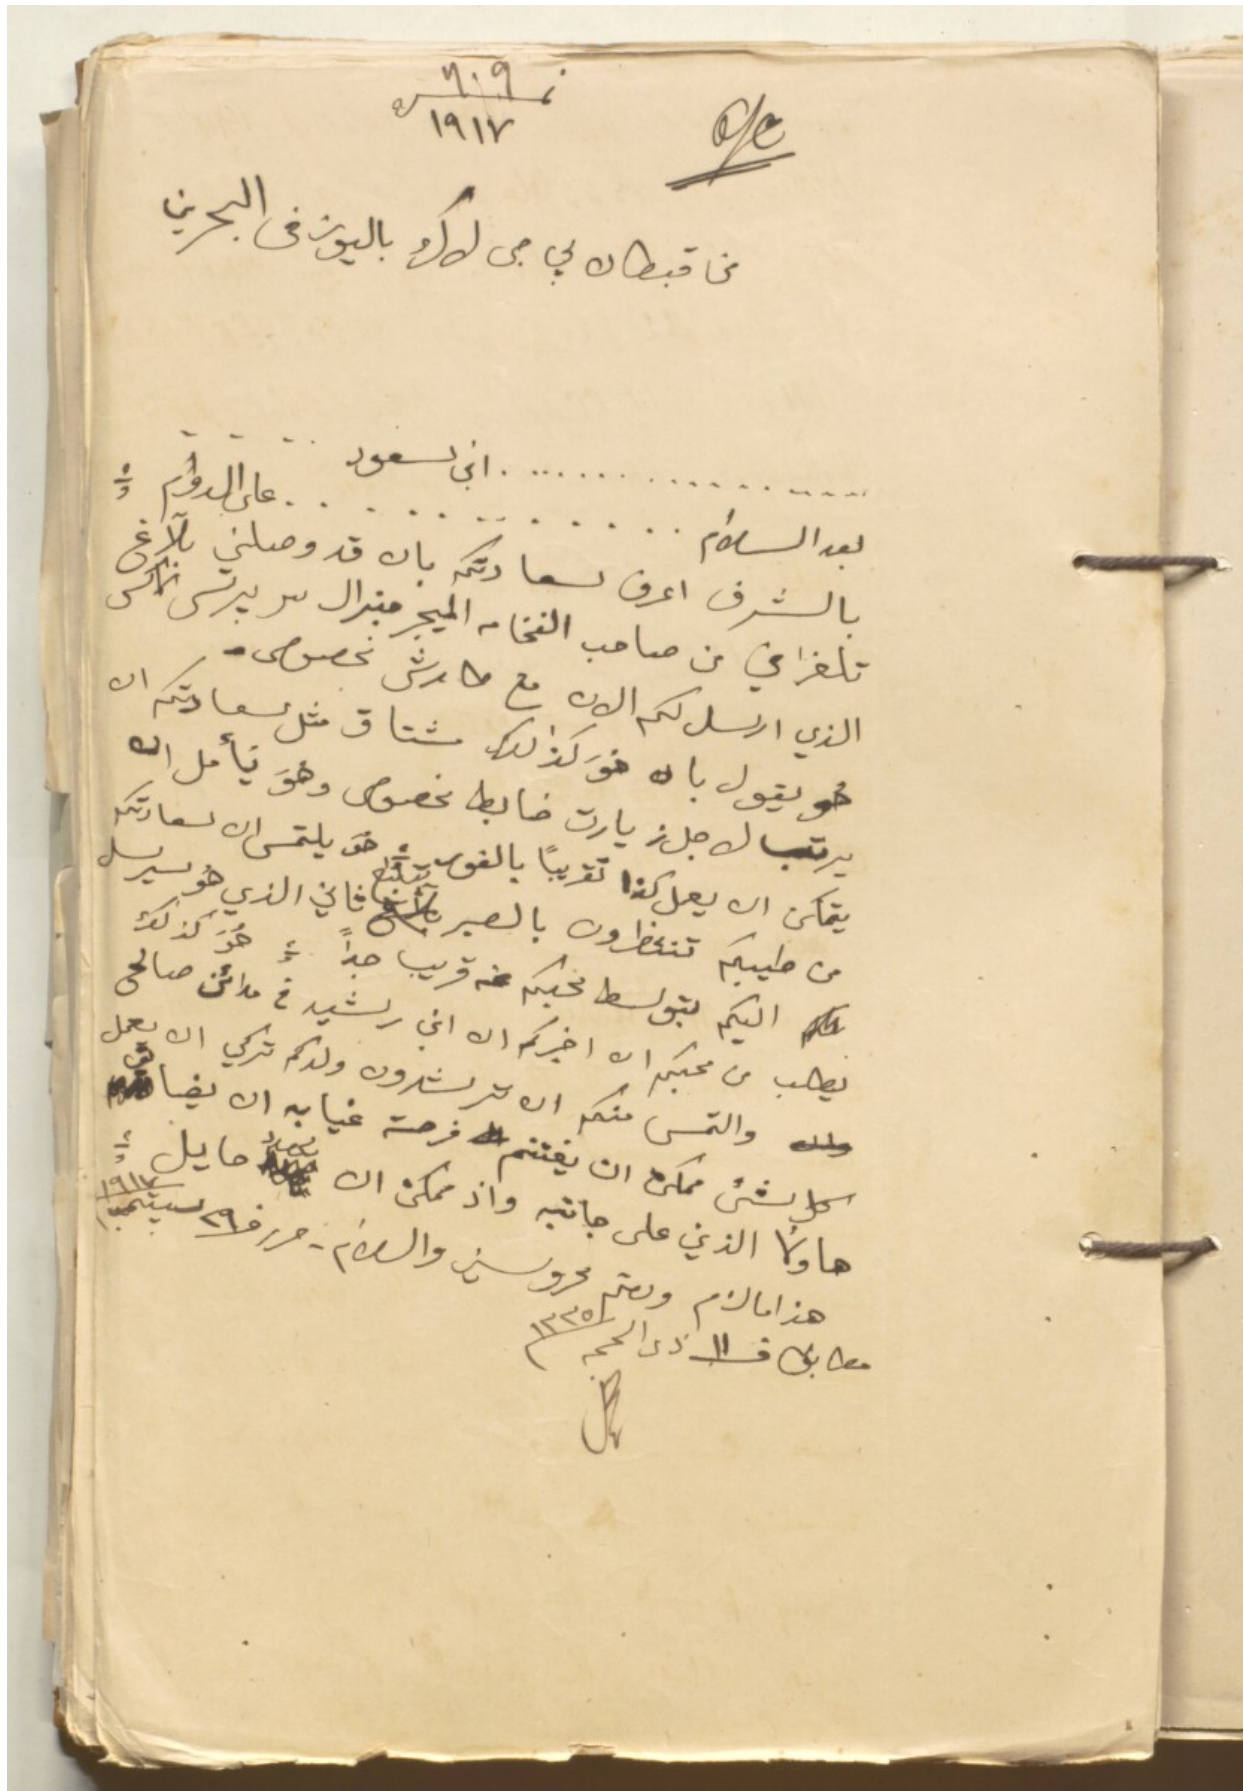 نمرة ٦٠٩
١٩١٧
O/C
من قبطان بي جى لاك باليوز فى البحرين
.... ابن سعود ....
بعد السلام .... على الدوام
بالشرف اعرف سعادتكم بان قد وصلني بلاغ
تلغرافي من صاحب الفخامه الميجر جنرال سر پرسى كاكس
الذي ارسل لكم الان مع طارش مخصوص -
هو يقول بان هو كذلك مشتاق مثل سعادتكم ان
يرتب لاجل زيارت ضابط مخصوص وهو يتأمل ان
يتمكن ان يعمل كذا تقريبًا بالفور هو يلتمس ان سعادتكم
من طيبكم تنتظرون بالصبر ثاني الذي هو سيرسل
اليكم بتوسط محبكم عن قريب جداً هو كذلك
يطلب من محبكم ان اخبركم ان ابن رشيد في مدائن صالح
والتمس منكم ان ترشدون ولدكم تركي ان يعمل
كل شئ ممكن ان يغتنم فرصة غيابه ان يضايق
هاولا الذين على جانبه واذ ممكن ان حايل
هذا ما لزم ودمتم محروسين والسلام - حرر في ٢٩ سبتمبر ١٩١٧
مطابق ١١ ذى الحجه ١٣٣٥